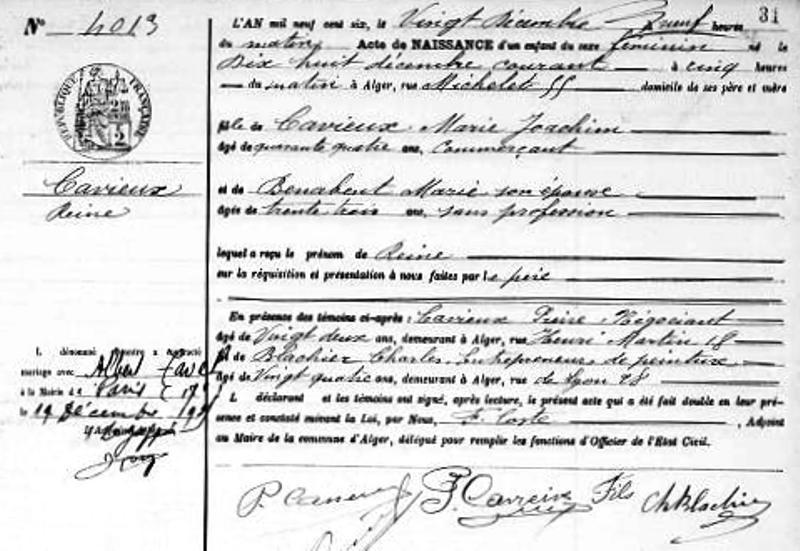 31
N° 4013
L'AN mil neuf cent six, le Vingt Décembre à neuf heures
du matin, Acte de NAISSANCE d'un enfant du sexe féminin né le
Dix huit décembre courant à cinq heures
du matin à Alger, rue Michelet 55 domicile de ses père et mère
RÉPUBLIQUE FRANÇAISE
fille de Cavieux Marie Joachim
âgé de quarante quatre ans, Commerçant
Cavieux
Reine
et de Benabent Marie son épouse
âgée de trente trois ans, sans profession
lequel a reçu le prénom de Reine
sur la réquisition et présentation à nous faites par le père
En présence des témoins ci-après : Cavieux Négociant
âgé de Vingt deux ans, demeurant à Alger, rue Henri Martin 18
et de Blachier Charles Entrepreneur de peinture
âgé de Vingt quatre ans, demeurant à Alger, rue de Lyon 28
L déclarant et les témoins ont signé, après lecture, le présent acte qui a été fait double en leur pré-
sence et constaté suivant la Loi, par Nous, F. Coste, Adjoint
au Maire de la commune d'Alger, délégué pour remplir les fonctions d'Officier de l'État Civil.
L dénommé contracté
mariage avec Albert
à la Mairie de Paris
le 19 Décembre
Fils ChBlachier